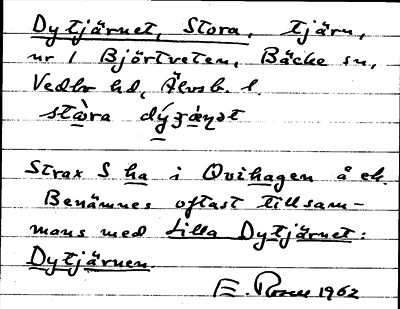 Dytjärnet, Stora, tjärn,
nr 1 Björtveten, Bäcke sn,
Vedbo hd, Älvsb. l.
stòra dýʒæ̀ɳət
Strax S ha i Qvihagen å ek.
Benämnes oftast tillsam-
mans med Lilla Dytjärnet:
Dytjärnen.
E. Rosen 1962